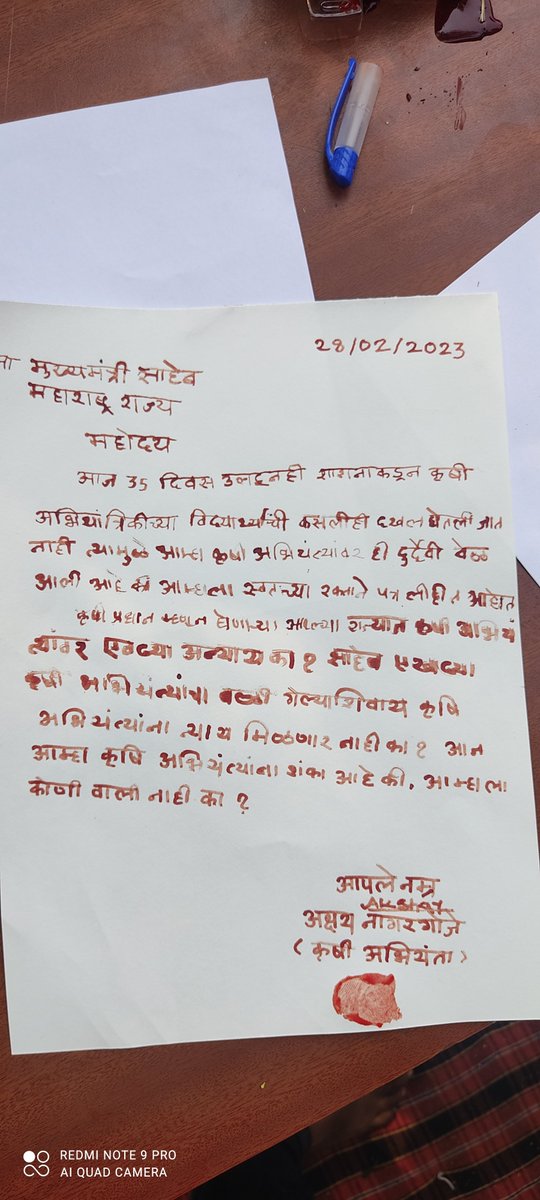 28/02/2023
मा मुख्यमंत्री साहेब
महाराष्ट्र राज्य
महोदय
आज 35 दिवस उलटूनही शासनाकडून कृषी
अभियांत्रिकीच्या विद्यार्थ्यांची कसलीही दखल घेतली जात
नाही त्यामुळे आम्हा कृषी अभियंत्यांवर ही दुर्दैवी वेळ
आली आहे की आम्हाला स्वतःच्या रक्ताने पत्र लीहीत आहोत
कृषी प्रधान म्हणून घेणाऱ्या आपल्या राज्यात कृषी अभियं
त्यांवर एवढ्या अन्याय का ? साहेब एखाद्या
कृषी अभियंत्यांचा बळी गेल्याशिवाय कृषि
अभियंत्यांना न्याय मिळणार नाही का ? आज
आम्हा कृषि अभियंत्यांना शंका आहे की, आम्हाला
कोणी वाली नाही का ?
आपले नम्र
अक्षय नागरगोजे
( कृषी अभियंता )
REDMI NOTE 9 PRO
AI QUAD CAMERA